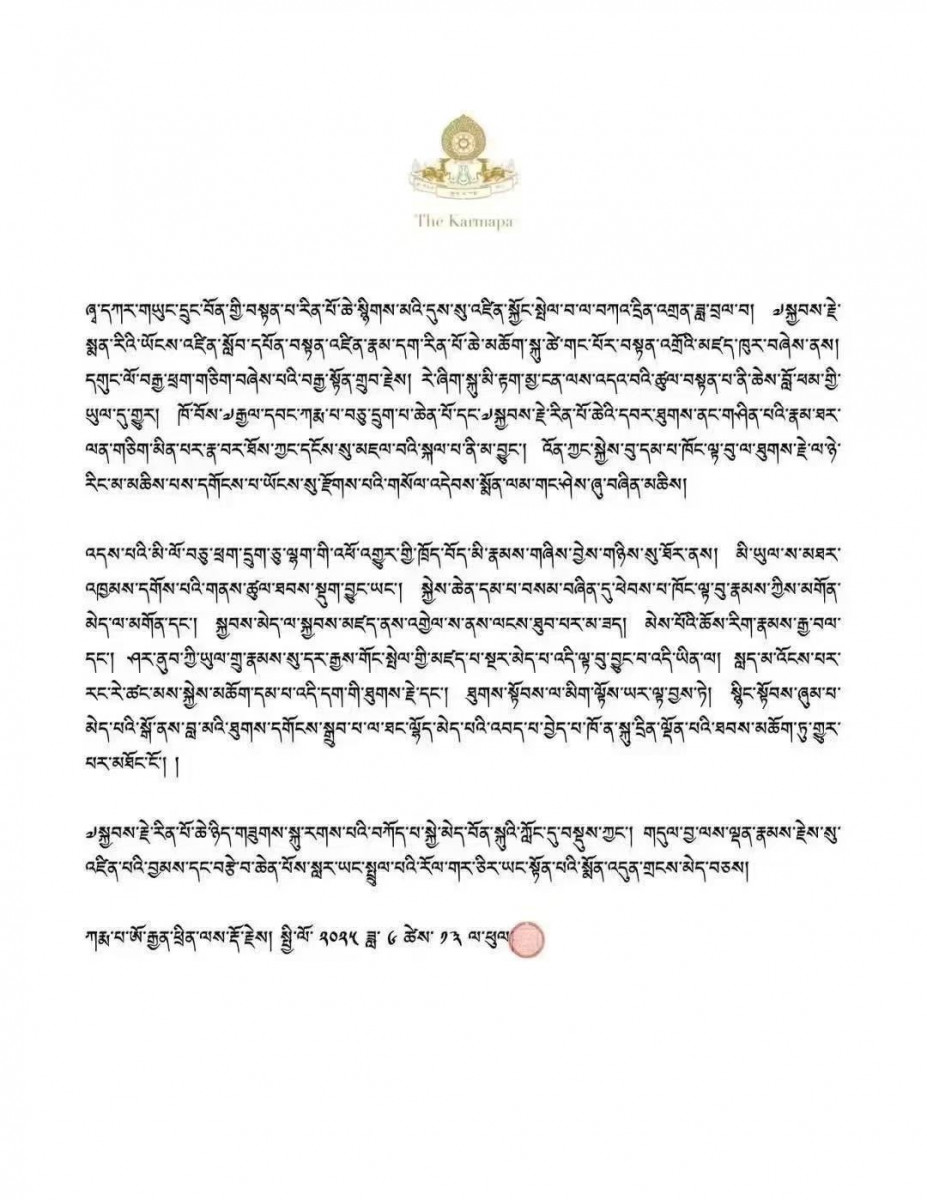 The Karmapa
ཞྭ་དཀར་གཡུང་དྲུང་བོན་གྱི་བསྟན་པ་རིན་པོ་ཆེ་སྙིགས་མའི་དུས་སུ་འཛིན་སྐྱོང་སྤེལ་བ་ལ་བཀའ་དྲིན་འགྲན་ཟླ་བྲལ་བ། ༧སྐྱབས་རྗེ་
སྨན་རིའི་ཡོངས་འཛིན་སློབ་དཔོན་བསྟན་འཛིན་རྣམ་དག་རིན་པོ་ཆེ་མཆོག་སྐུ་ཚེ་གང་པོར་བསྟན་འགྲོའི་མཛད་ཁུར་བཞེས་ནས།
དགུང་ལོ་བརྒྱ་ཕྲག་གཅིག་བཞེས་པའི་བརྒྱ་སྟོན་གྲུབ་རྗེས། རེ་ཞིག་སྐུ་མི་རྟག་མྱ་ངན་ལས་འདའ་བའི་ཚུལ་བསྟན་པ་ནི་ཆེས་བློ་ཕམ་གྱི་
ཡུལ་དུ་གྱུར། ཁོ་བོས་༧རྒྱལ་དབང་ཀརྨ་པ་བཅུ་དྲུག་པ་ཆེན་པོ་དང་༧སྐྱབས་རྗེ་རིན་པོ་ཆེའི་དབར་ཐུགས་ནང་གཤིན་པའི་རྣམ་ཐར་
ལན་གཅིག་མིན་པར་རྣ་བར་ཐོས་ཀྱང་དངོས་སུ་མཇལ་བའི་སྐལ་པ་ནི་མ་བྱུང་། འོན་ཀྱང་སྐྱེས་བུ་དམ་པ་ཁོང་ལྟ་བུ་ལ་ཐུགས་རྗེ་ལ་ཉེ་
རིང་མ་མཆིས་པས་དགོངས་པ་ཡོངས་སུ་རྫོགས་པའི་གསོལ་འདེབས་སྨོན་ལམ་གང་ཤེས་ཞུ་བཞིན་མཆིས།
འདས་པའི་མི་ལོ་བཅུ་ཕྲག་དྲུག་ཅུ་ལྷག་གི་འཕོ་འགྱུར་གྱི་ཁྲོད་བོད་མི་རྣམས་གཞིས་བྱེས་གཉིས་སུ་ཐོར་ནས། མི་ཡུལ་ས་མཐར་
འཁྱམས་དགོས་པའི་གནས་ཚུལ་ཐབས་སྡུག་བྱུང་ཡང་། སྐྱེས་ཆེན་དམ་པ་བསམ་བཞིན་དུ་ཕེབས་པ་ཁོང་ལྟ་བུ་རྣམས་ཀྱིས་མགོན་
མེད་ལ་མགོན་དང་། སྐྱབས་མེད་ལ་སྐྱབས་མཛད་ནས་འགྱེལ་ས་ནས་ལངས་ཐུབ་པར་མ་ཟད། མེས་པོའི་ཆོས་རིག་རྣམས་རྒྱ་བལ་
དང་། ཤར་ནུབ་ཀྱི་ཡུལ་གྲུ་རྣམས་སུ་དར་རྒྱས་གོང་སྤེལ་གྱི་མཛད་པ་སྔར་མེད་པ་འདི་ལྟ་བུ་བྱུང་བ་འདི་ཡིན་ལ། སླད་མ་འོངས་པར་
རང་རེ་ཚང་མས་སྐྱེས་མཆོག་དམ་པ་འདི་དག་གི་ཐུགས་རྗེ་དང་། ཐུགས་སྟོབས་ལ་མིག་ལྟོས་ཡར་ལྟ་བྱས་ཏེ། སྙིང་སྟོབས་ཞུམ་པ་
མེད་པའི་སྒོ་ནས་བླ་མའི་ཐུགས་དགོངས་སྒྲུབ་པ་ལ་ཐང་ལྷོད་མེད་པའི་འབད་པ་བྱེད་པ་ཁོ་ན་སྐུ་དྲིན་ལྡོན་པའི་ཐབས་མཆོག་ཏུ་གྱུར་
པར་མཐོང་ངོ་། །
༧སྐྱབས་རྗེ་རིན་པོ་ཆེ་ཉིད་གཟུགས་སྐུ་རགས་པའི་བཀོད་པ་སྐྱེ་མེད་བོན་སྐུའི་ཀློང་དུ་བསྡུས་ཀྱང་། གདུལ་བྱ་ལས་ལྡན་རྣམས་རྗེས་སུ་
འཛིན་པའི་བྱམས་དང་བརྩེ་བ་ཆེན་པོས་སླར་ཡང་སྤྲུལ་པའི་རོལ་གར་ཅིར་ཡང་སྟོན་པའི་སྨོན་འདུན་གྲངས་མེད་བཅས།
ཀརྨ་པ་ཨོ་རྒྱན་ཕྲིན་ལས་རྡོ་རྗེས། སྤྱི་ལོ་ ༢༠༢༥ ཟླ་ ༦ ཚེས་ ༡༣ ལ་ཕུལ